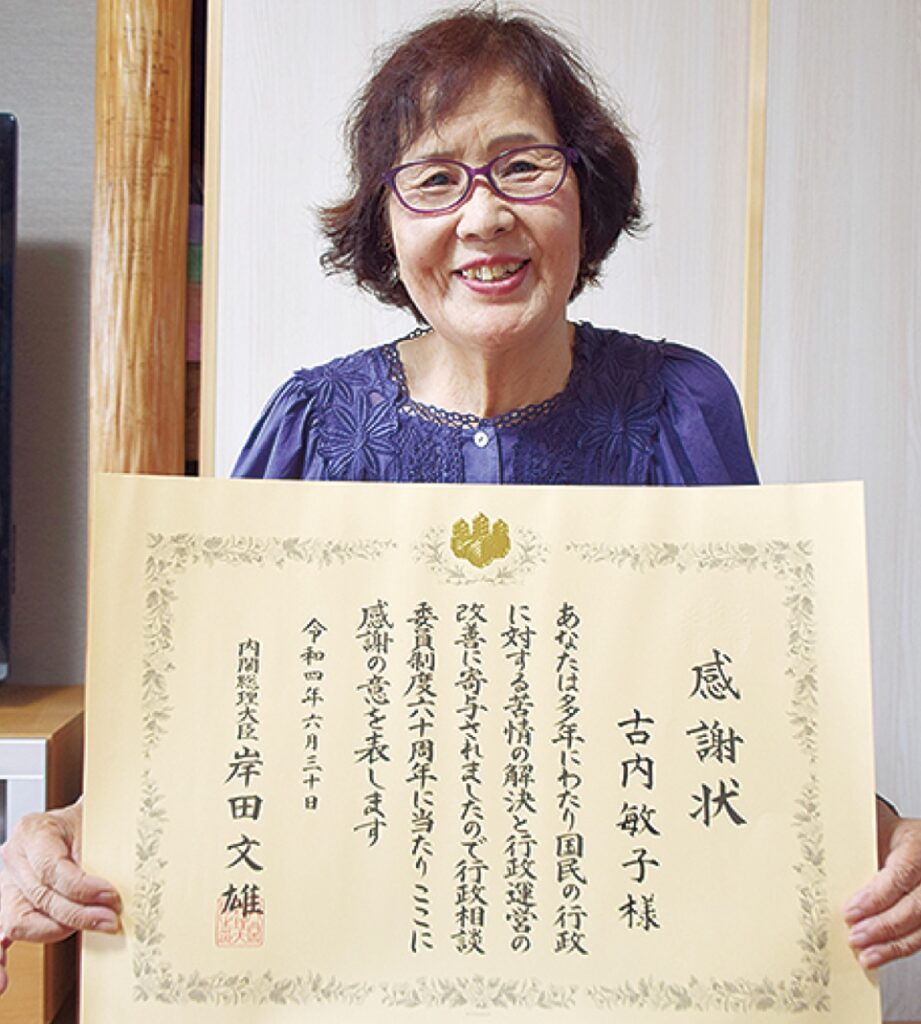 感謝状
古内敏子様
あなたは多年にわたり国民の行政
に対する苦情の解決と行政運営の
改善に寄与されましたので行政相談
委員制度六十周年に当たりここに
感謝の意を表します
令和四年六月三十日
内閣総理大臣 岸田文雄